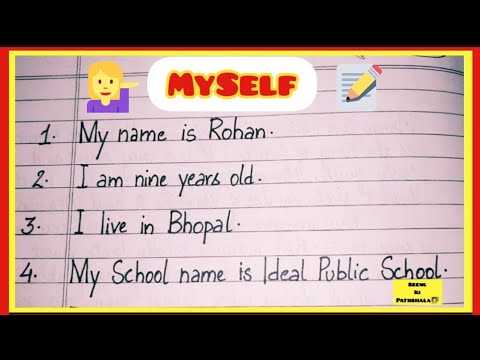 MYSELF
1. My name is Rohan.
2. I am nine years old.
3. I live in Bhopal.
4. My School name is Ideal Public School.
Seenu
Ki
Pathshala